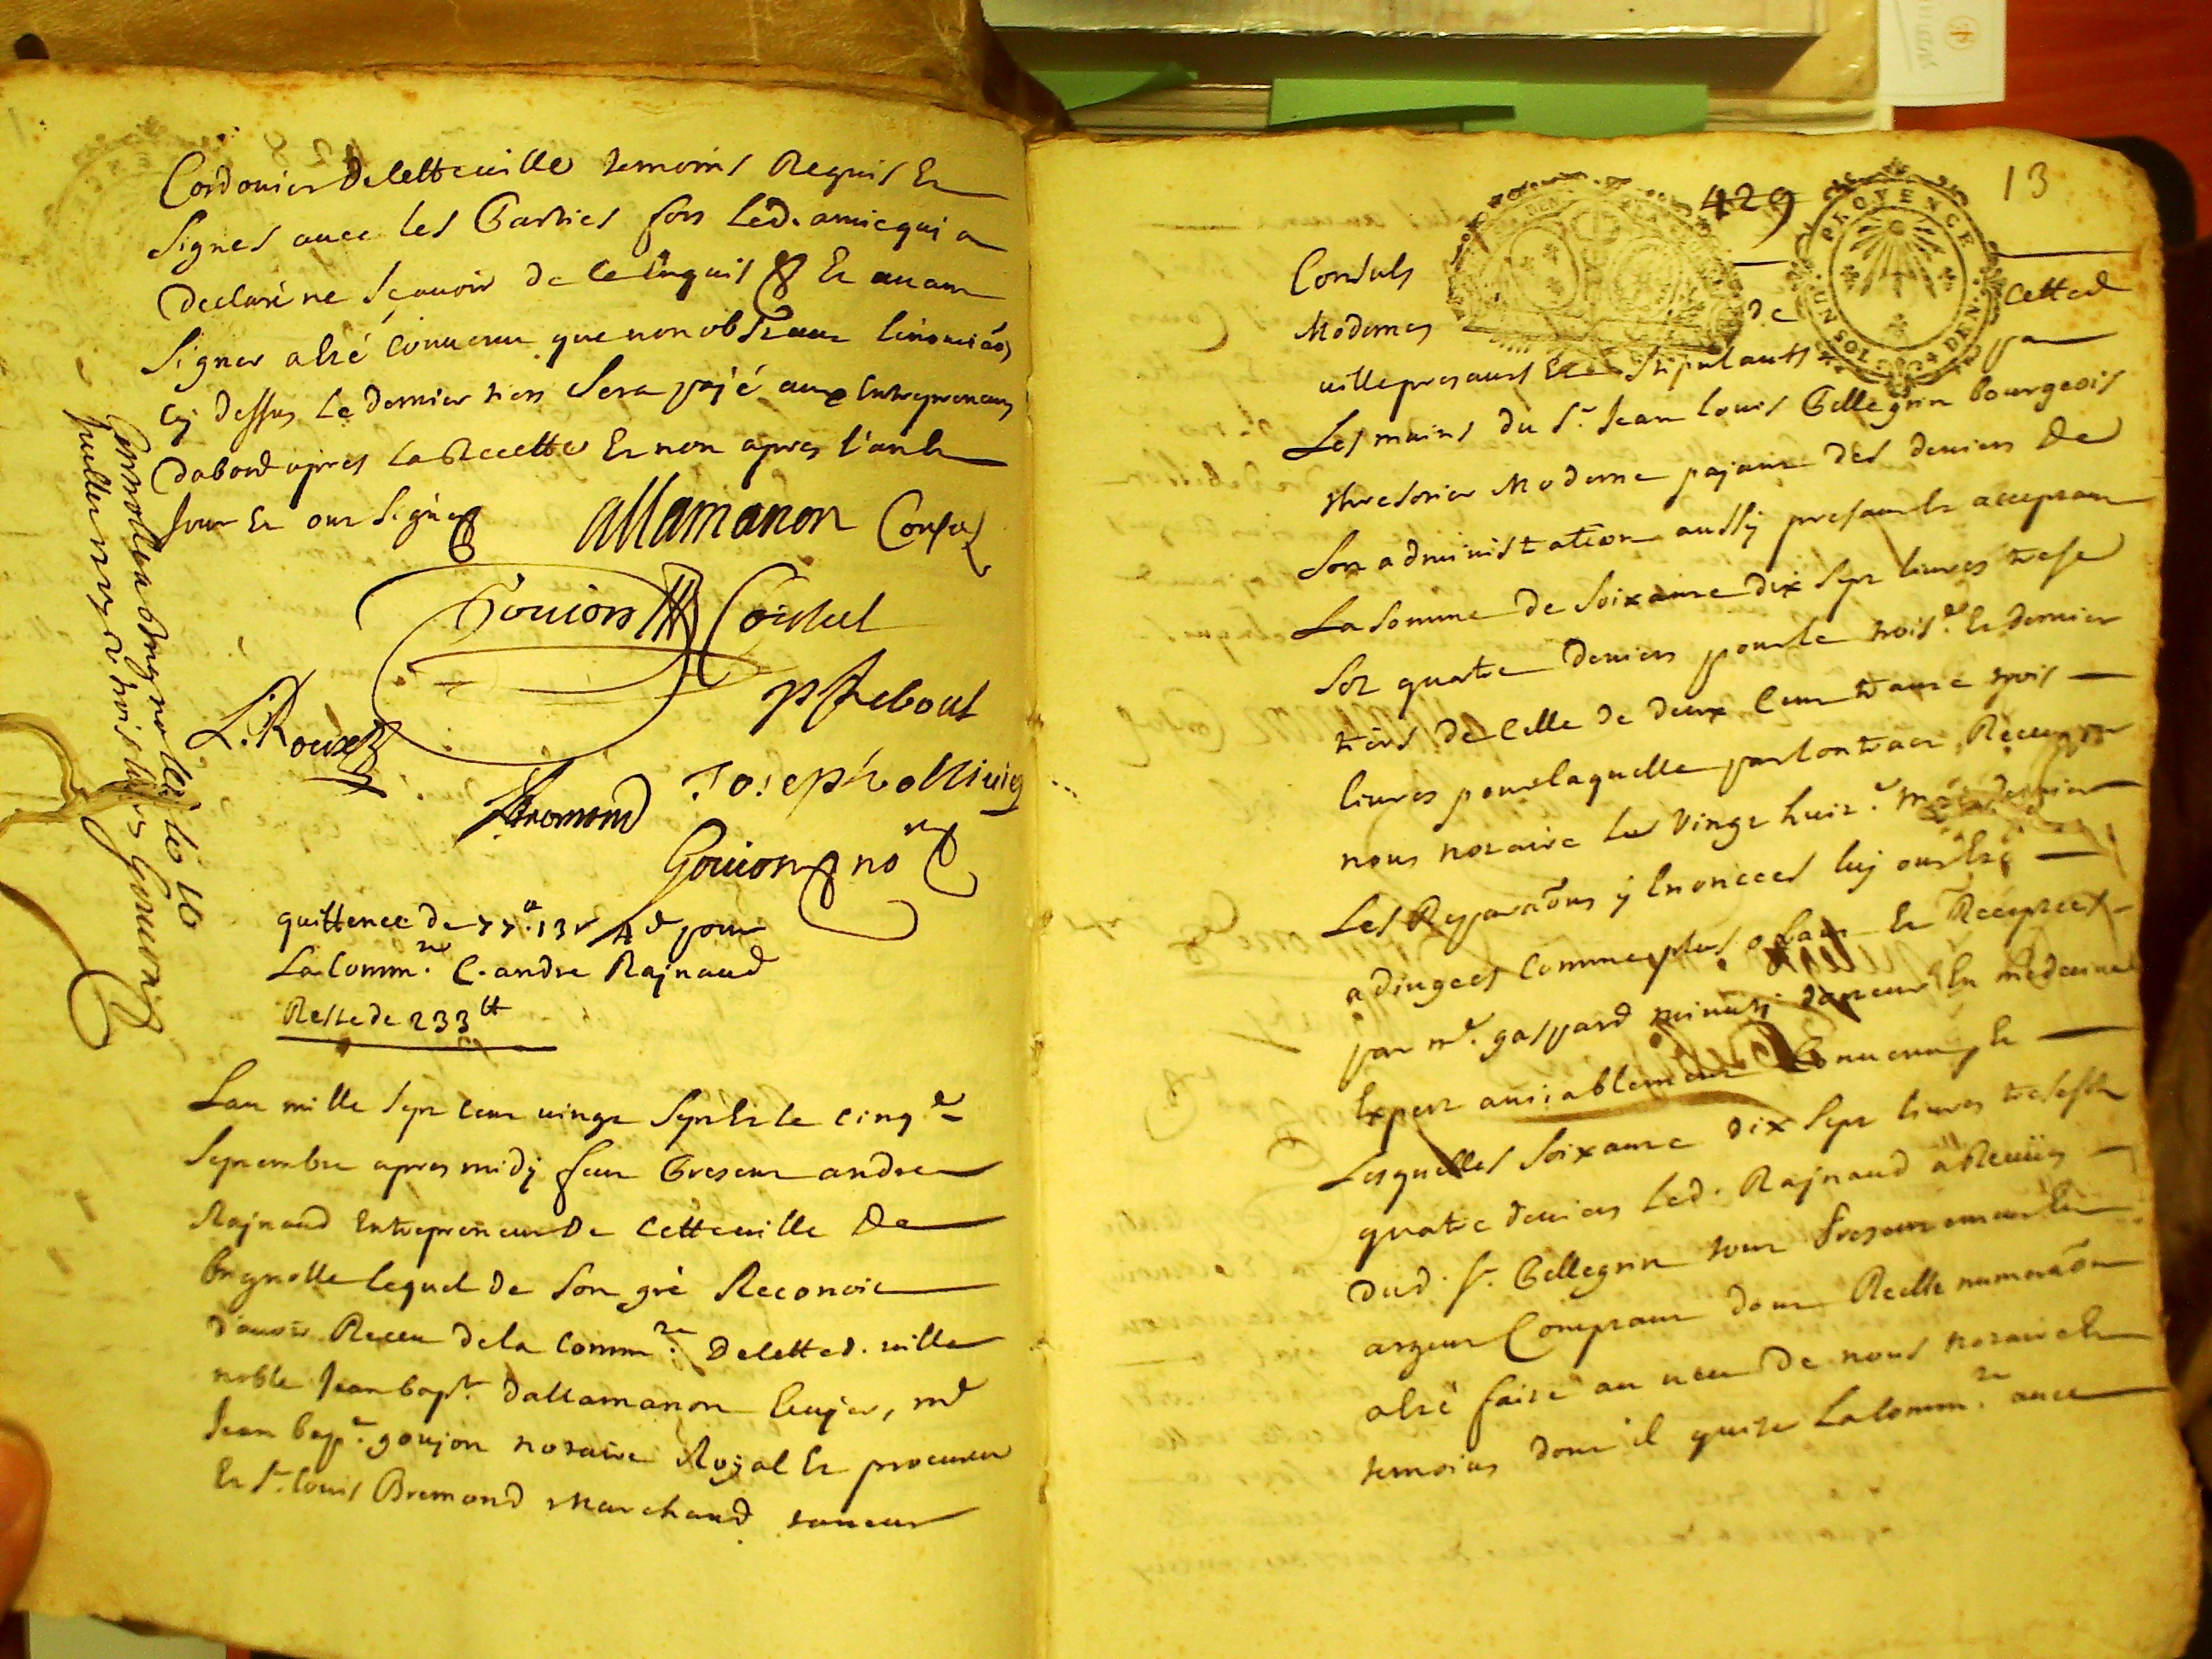 Cordonier de cette ville temoins Requis Et
signes avec les Parties fors led. amic qui a
declaré ne sçavoir de ce Enquis Et avant
signer a Esté Convenu que non obstant
cy dessus Le dernier tiers sera payé aux Entrepreneurs
dabord apres La Recette Et non apres l'an Et
jour Et ont signé
allamanon Consul
Goujon Consul
L. Roux
P Rebout
Bremond
Joseph ollivier
Goujon no.re
Controllé a Brignolle le 10
juillet
quittence de 77.tt 13 s 4 d pour
La Comm.té C. andre Rajnaud
Reste de 233 tt
Lan mille sept cent vingt sept Et le cinq.e
septembre apres midy feut Present andre
Rajnaud Entrepreneur De Cette ville De
brignolle lequel de son gré Reconoit
d'avoir Receu de la Comm.té De cette d. ville
noble Jean bap.te dallamanon Ecuyer, m.e
Jean bap.te goujon notaire Royal Et procureur
Et s.r louis Bremond Marchand taneur
429
13
PROVENCE
UN SOL DEN.
Consuls
Modernes de cette d
ville presants Et Stipulants par
Les mains du s.r Jean louis Pellegrin bourgeois
thresorier Moderne payant des deniers De
son administration aussy present Et acceptant
La somme de soixante dix sept livres trese
sol quatre deniers pour le trois.e Et dernier
tiers de celle de deux Cent trante trois
livres pour laquelle par Contract Receu par
nous notaire Le vingt huit.e may dernier
Les Reparaõns y Enoncees luy ont Esté
adjugees Comme plus offrant Et Receptees
par m.e gaspard minuty docteur En medecine
Expert amiablement Convenu, Et
Lesquelles soixante dix sept livres trese sols
quatre deniers led. Rajnaud a Receües
dud. s.r Pellegrin tout Presentement En
argent Comptant dont Reelle numeraõn
a Esté faite au veu De nous notaire Et
temoins dont il quitte La Comm.té avec